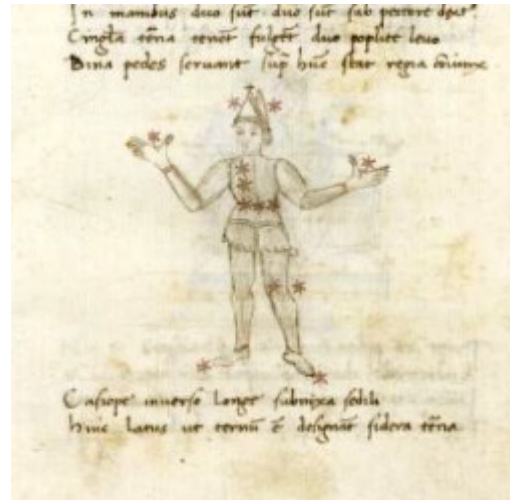 In manibus duo sūt duo sūt sub pectore
Cingla tēna tenēt fulgēt duo poplite levo
Bina pedes servant sup hūc stat regia
Casiope inverso longe subnixa sedili
Huic latus ut ternū ē designāt sidera tēna